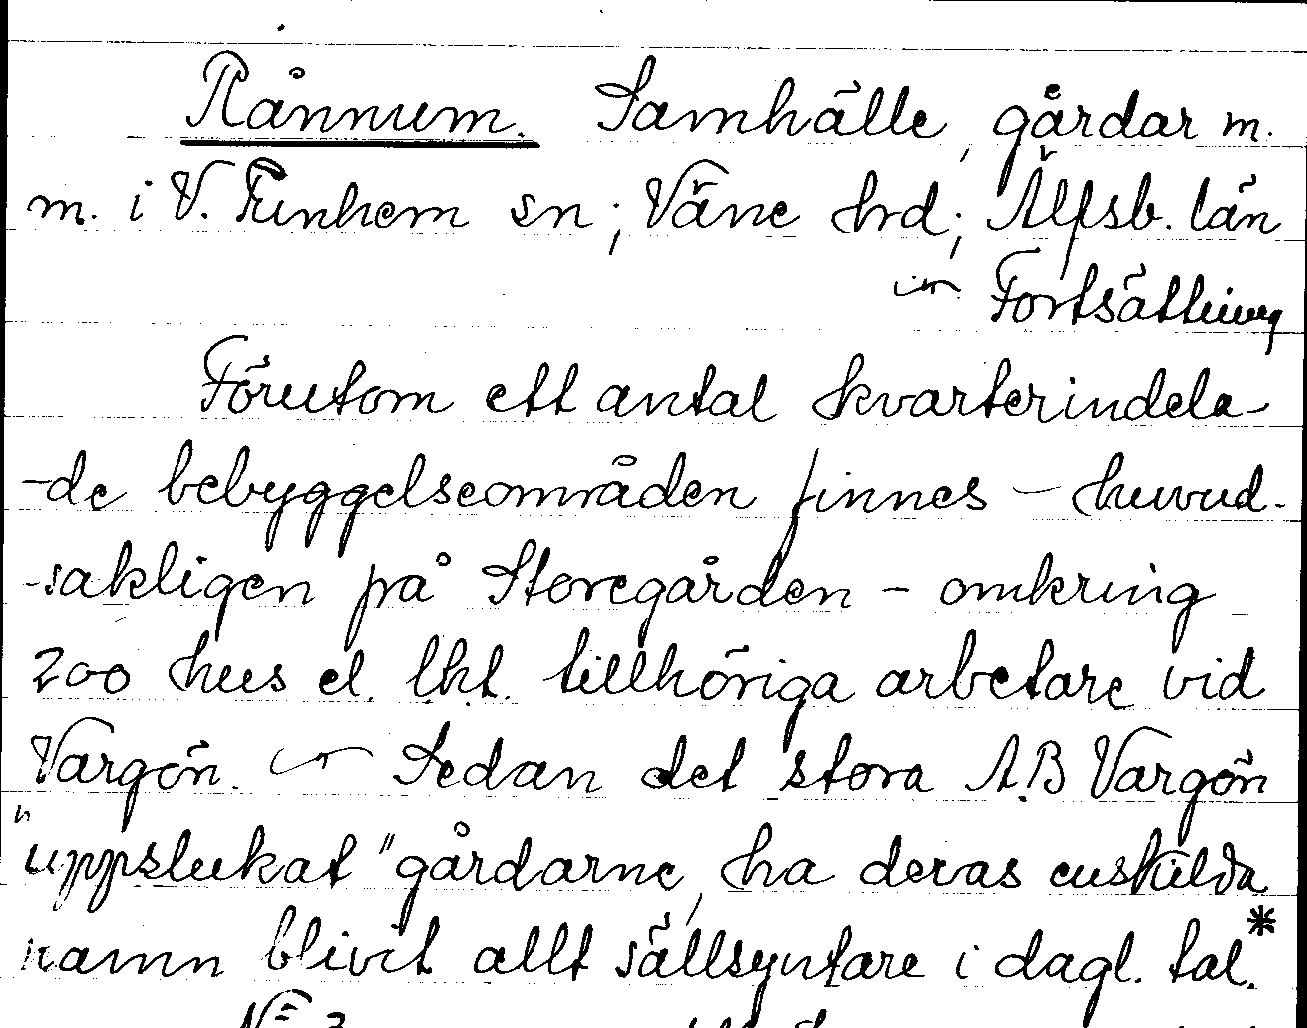 Rånnum. Samhälle, gårdar m.
m. i V. Tunhem sn; Väne hrd; Älfsb. län
Fortsättning
Förutom ett antal kvarterindela-
-de bebyggelseområden finnes – huvud-
-sakligen på Storegården – omkring
200 hus el. lht. tillhöriga arbetare vid
Vargön. Sedan det stora A.B Vargön
"uppslukat" gårdarne, ha deras enskilda
namn blivit allt sällsyntare i dagl. tal.*